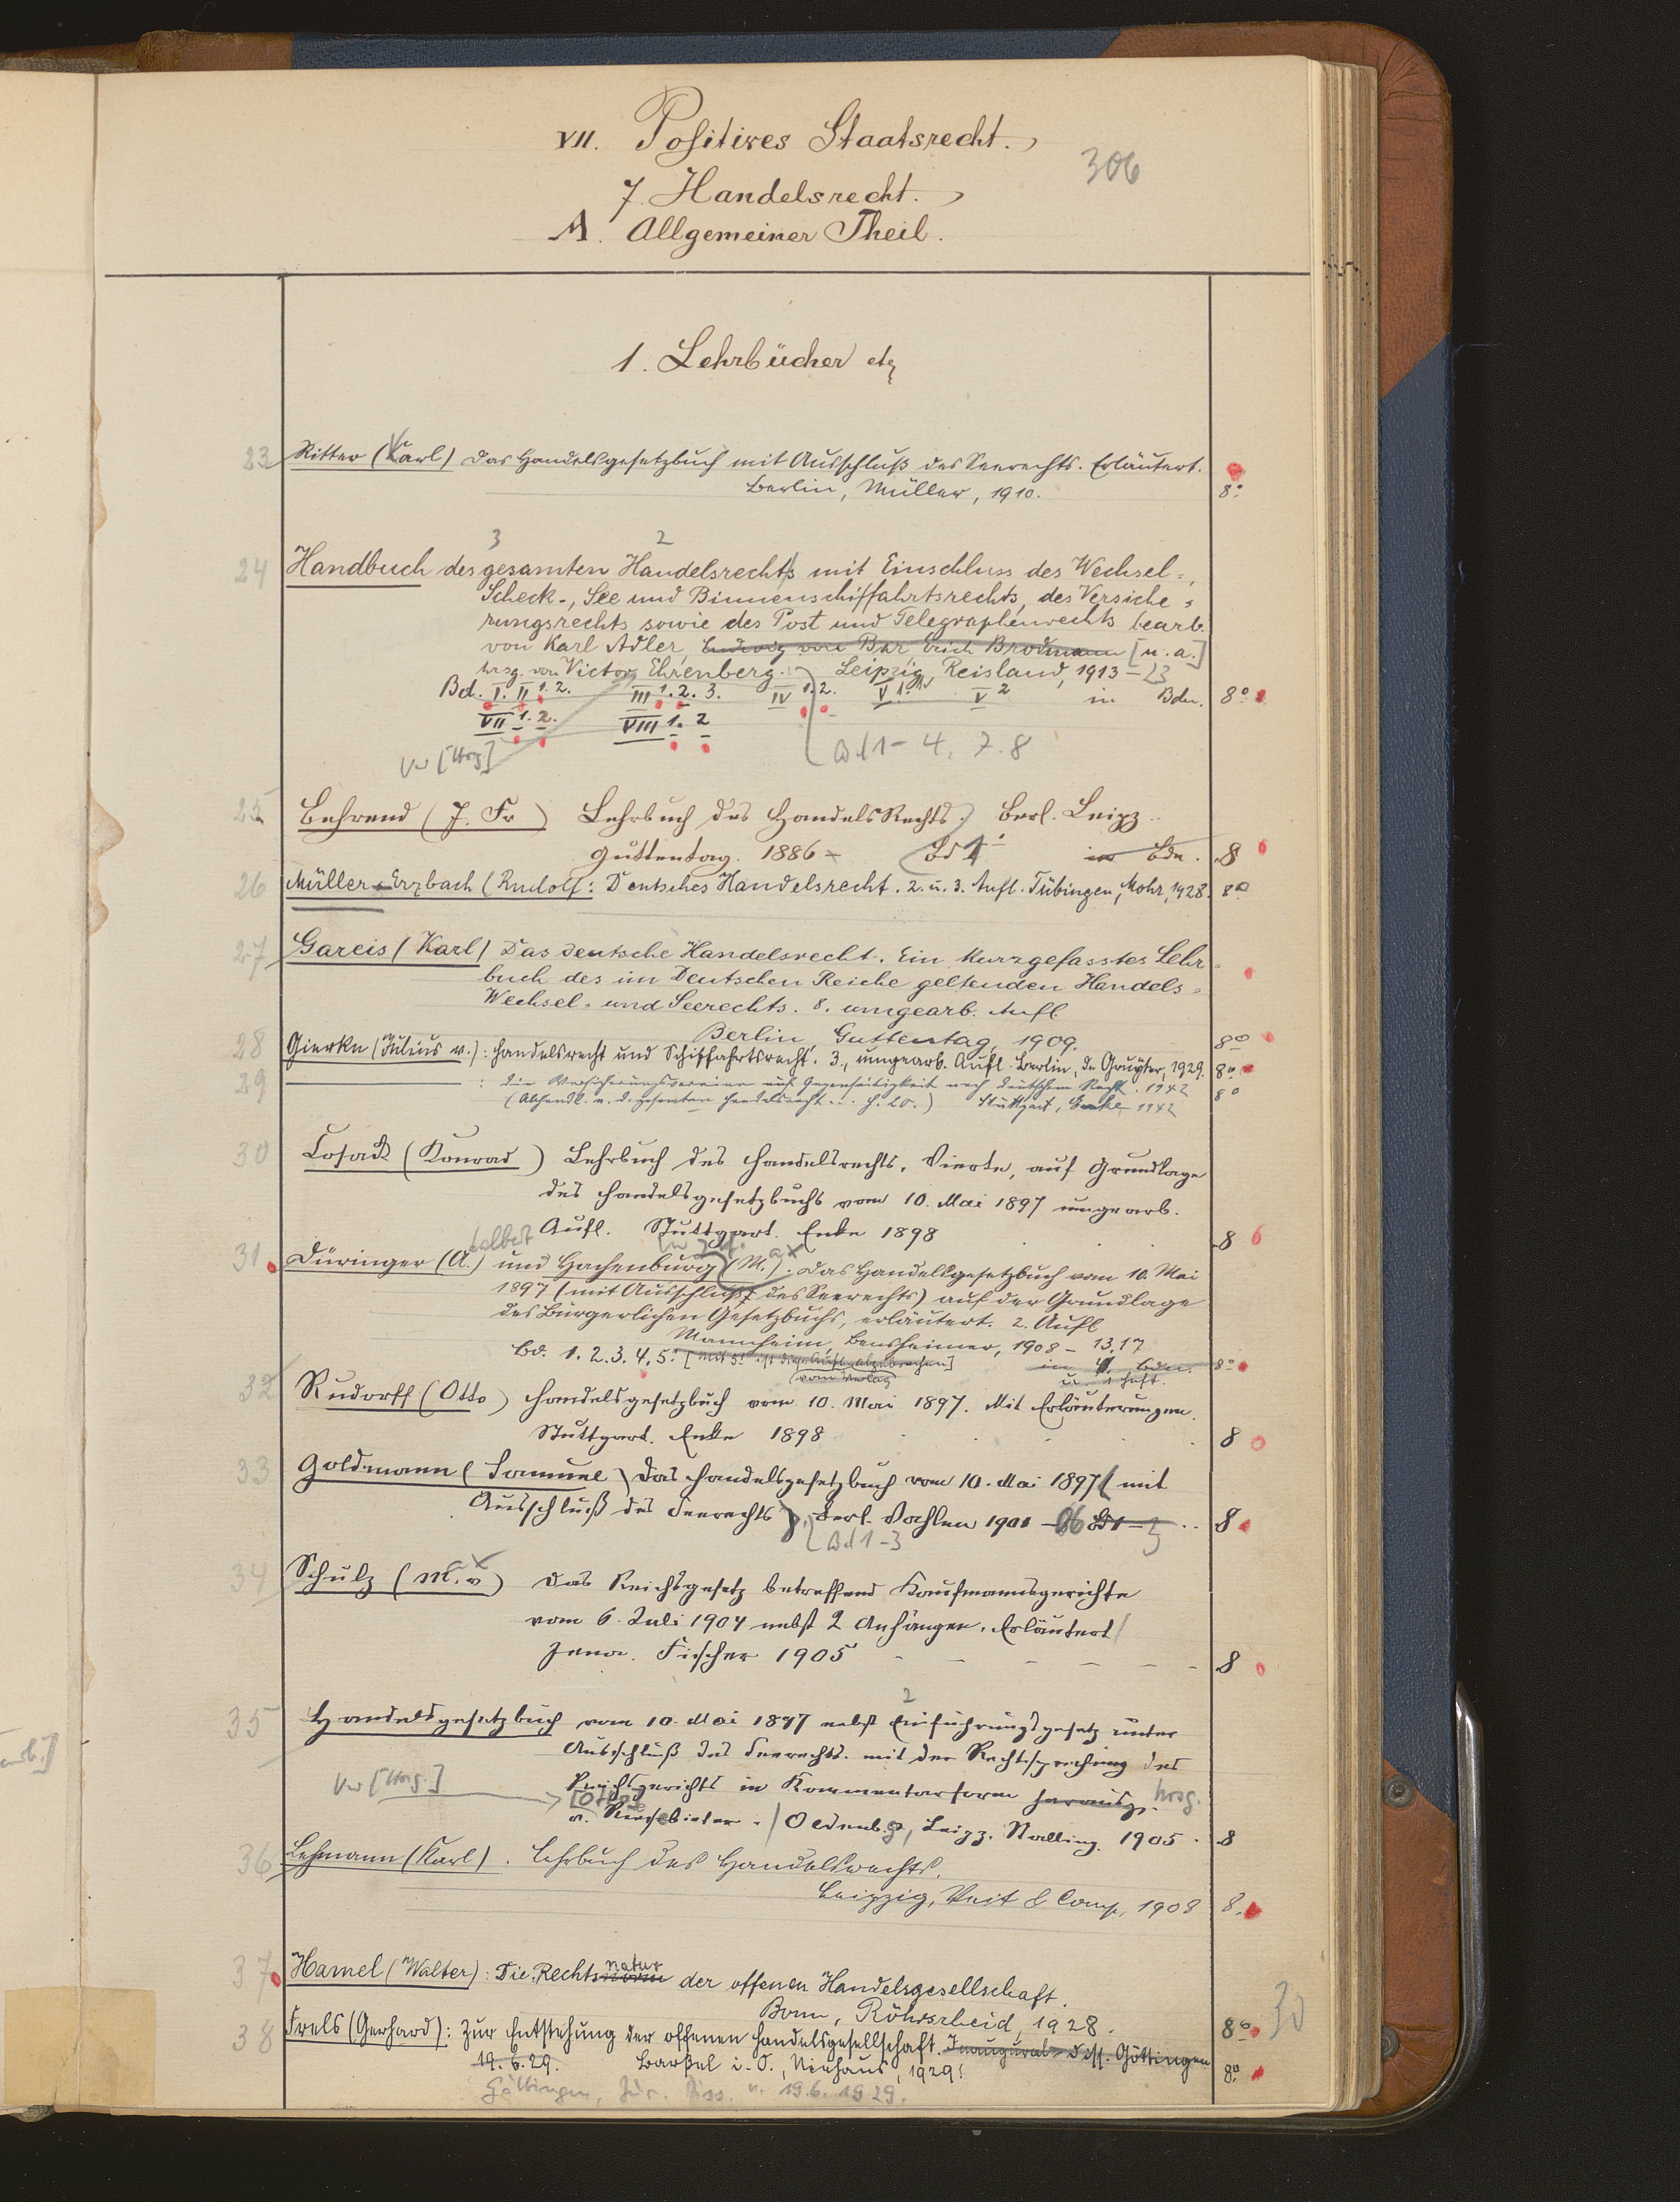 VII. Positives Staatsrecht.
306
7. Handelsrecht.
A. Allgemeiner Theil.
1. Lehrbücher etc
23 Ritter (Karl) Das Handelsgesetzbuch mit Ausschluß des Seerechts. Erläutert.
Berlin, Müller, 1910. 8°
3 2
24 Handbuch des gesamten Handelsrechts mit Einschluss des Wechsel-,
Scheck-, See und Binnenschiffahrtsrechts, des Versiche-
rungsrechts sowie des Post und Telegraphenrechts bearb.
von Karl Adler, Ludwig von Bar, Erich Brodmann [u. a.]
hrsg. von Victor Ehrenberg. Leipzig, Reisland, 1913-23
Bd. I. II 1. 2. III 1. 2. 3. IV 1. 2. V 1. V 2 in Bdn. 8°
VII 1. 2. VIII 1. 2
Vw [Hrsg] Bd 1-4, 7. 8
25 Behrend (J. Fr) Lehrbuch des HandelsRechts. Berl. Leipz.
Guttentag. 1886- Bd 1 in Bdn. 8
26 Müller-Erzbach (Rudolf: Deutsches Handelsrecht. 2. u. 3. Aufl. Tübingen, Mohr, 1928. 8°
27 Gareis (Karl) Das deutsche Handelsrecht. Ein kurzgefasstes Lehr-
buch des im Deutschen Reiche geltenden Handels-
Wechsel- und Seerechts. 8. umgearb. Aufl.
Berlin, Guttentag, 1909. 8°
28 Gierke (Julius v.): Handelsrecht und Schiffahrtsrecht. 3., umgearb. Aufl. Berlin, de Gruyter, 1929. 8°
29 : Die Versicherungsvereine auf Gegenseitigkeit nach deutschem Recht. 1942 8°
(Abhandl. a. d. gesamten Handelsrecht... H. 20.) Stuttgart, Enke 1942
30 Cosack (Konrad) Lehrbuch des Handelsrechts. Vierte, auf Grundlage
des Handelsgesetzbuchs vom 10. Mai 1897 umgearb.
Aufl. Stuttgart. Enke 1898 8
31. Düringer (A.) und Hachenburg (M.). Das Handelsgesetzbuch vom 10. Mai
1897 (mit Ausschluß des Seerechts) auf der Grundlage
des Bürgerlichen Gesetzbuchs, erläutert. 2. Aufl
Mannheim, Bensheimer, 1908-13.17
Bd. 1. 2. 3. 4. 5.1 [Mit 5.1 ist diese Aufl. abgebrochen] in 4 Bdn. 8°
vom Verlag u. 1 Heft.
32 Rudorff (Otto) Handelsgesetzbuch vom 10. Mai 1897. Mit Erläuterungen.
Stuttgart. Enke 1898 8
33 Goldmann (Samuel) Das Handelsgesetzbuch vom 10. Mai 1897 (mit
Ausschluß des Seerechts). Berl. Vahlen 1901-06 Bd 1-3 8
Bd 1-3
34 Schulz (M. v) Das Reichsgesetz betreffend Kaufmannsgerichte
vom 6. Juli 1904 nebst 2 Anhängen. Erläutert
Jena. Fischer 1905 8
2
35 Handelsgesetzbuch vom 10. Mai 1897 nebst Einführungsgesetz unter
Ausschluß des Seerechts. mit der Rechtsprechung des
Vw [Hrsg.] Reichsgerichts in Kommentarform herausg. hrsg.
v. Riesebieter. Oldenb., Leipz. Stalling. 1905. 8
36 Lehmann (Karl). Lehrbuch des Handelsrechts.
Leipzig, Veit & Comp, 1908 8.
37 Hamel (Walter): Die Rechtsnorm natur der offenen Handelsgesellschaft.
Bonn, Röhrscheid, 1928. 8° 30
38 Frels (Gerhard): Zur Entstehung der offenen Handelsgesellschaft. Inaugural-Diss. Göttingen
19. 6. 29. Barßel i. O., Niehaus, 1929. 8°
Göttingen, Jur. Diss. v. 19.6.1929.